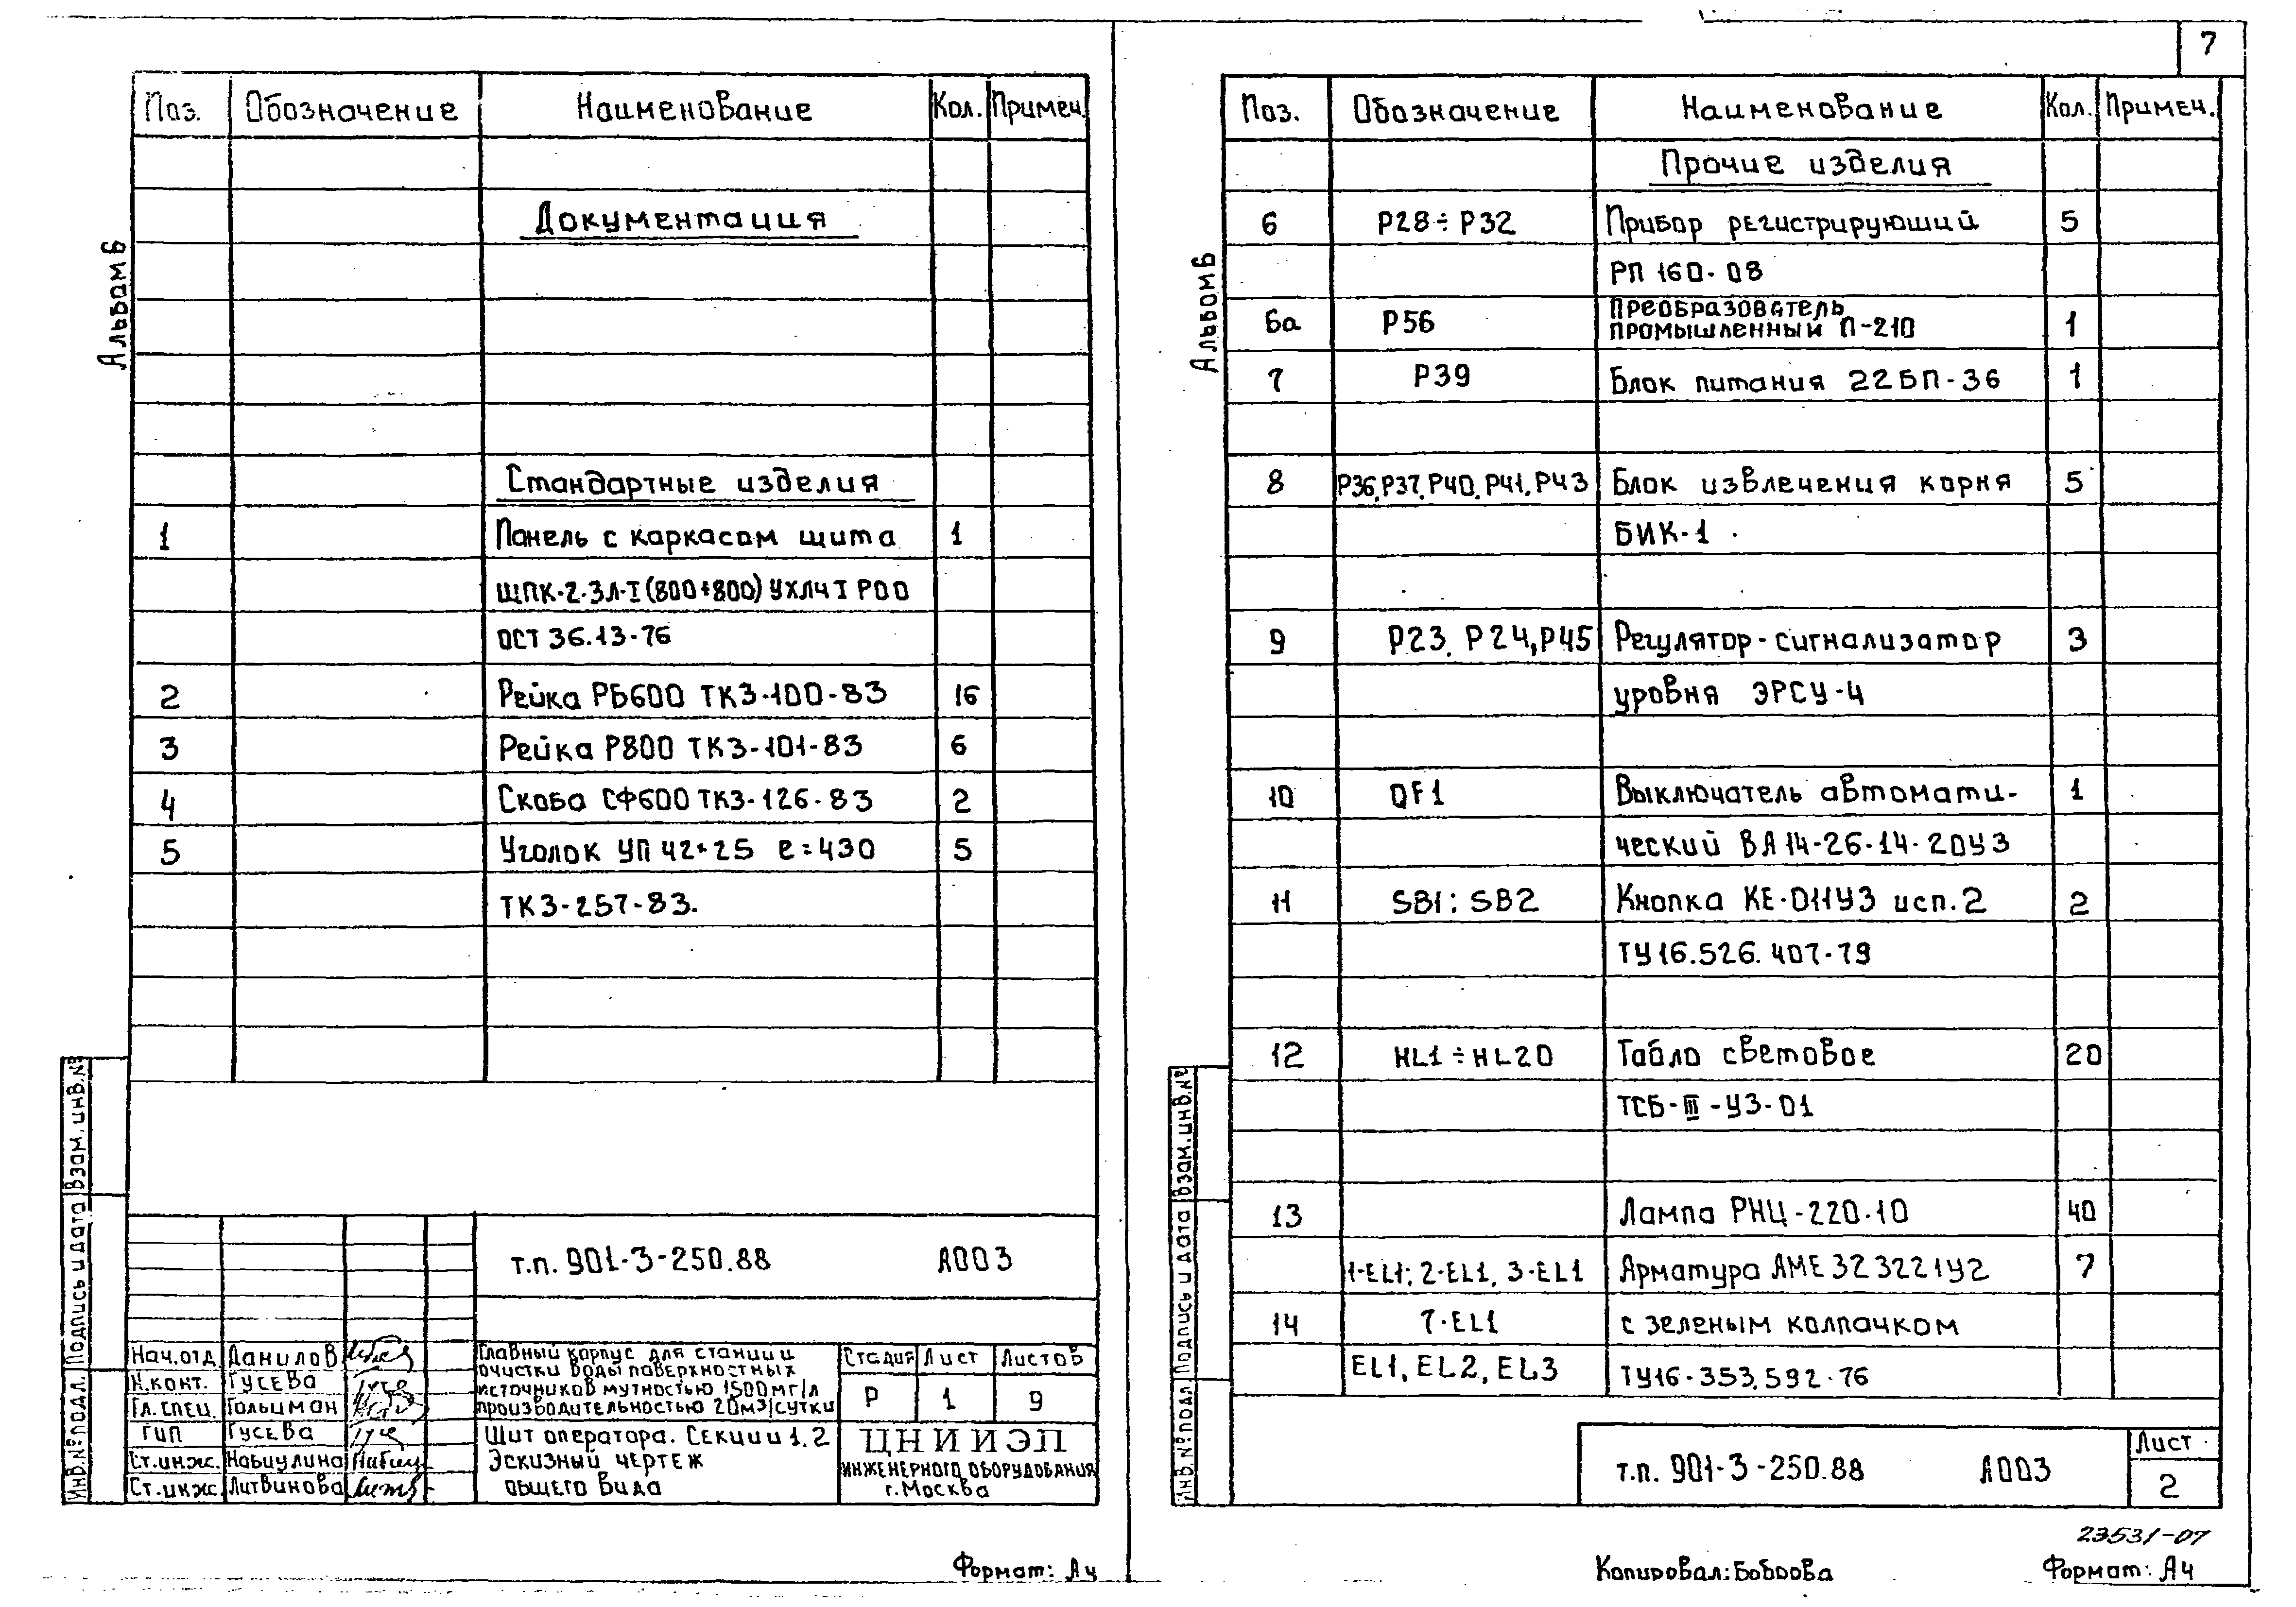 7
Альбом 6
Поз. Обозначение Наименование Кол. Примеч.
Документация
Стандартные изделия
1 Панель с каркасом щита 1
ЩПК-2-3Л-I (800+800) УХЛ4 I Р00
ОСТ 36.13-76
2 Рейка РБ600 ТК3-100-83 16
3 Рейка Р800 ТК3-101-83 6
4 Скоба СФ600 ТК3-126-83 2
5 Уголок УП 42×25 ℓ=430 5
ТК3-257-83.
Взам. инв. №
Подпись и дата
Инв. № подл.
т.п. 901-3-250.88 АООЗ
Нач.отд Данилов
Н.конт. Гусева
Гл.спец. Гольцман
ГИП Гусева
Ст.инж. Набиулина
Ст.инж. Литвинова
Главный корпус для станции
очистки воды поверхностных
источников мутностью 1500мг/л
производительностью 20м³/сутки
Стадия Лист Листов
Р 1 9
Щит оператора. Секции 1, 2
Эскизный чертеж
общего вида
ЦНИИЭП
ИНЖЕНЕРНОГО ОБОРУДОВАНИЯ
г. Москва
Формат: А4
Альбом 6
Поз. Обозначение Наименование Кол. Примеч.
Прочие изделия
6 Р28÷Р32 Прибор регистрирующий 5
РП 160-08
6а Р56 Преобразователь
промышленный П-210 1
7 Р39 Блок питания 22БП-36 1
8 Р36, Р37, Р40, Р41, Р43 Блок извлечения корня 5
БИК-1
9 Р23, Р24, Р45 Регулятор-сигнализатор 3
уровня ЭРСУ-4
10 QF1 Выключатель автомати- 1
ческий ВА14-26-14-20У3
11 SB1; SB2 Кнопка КЕ-011У3 исп.2 2
ТУ16.526.407-79
12 HL1÷HL20 Табло световое 20
ТСБ-III-У3-01
13 Лампа РНЦ-220-10 40
1-EL1; 2-EL1, 3-EL1 Арматура АМЕ 323221У2 7
14 7-EL1 с зеленым колпачком
EL1, EL2, EL3 ТУ16-353.592-76
Взам. инв. №
Подпись и дата
Инв. № подл.
т.п. 901-3-250.88 АООЗ
Лист
2
23531-07
Копировал: Боброва
Формат: А4